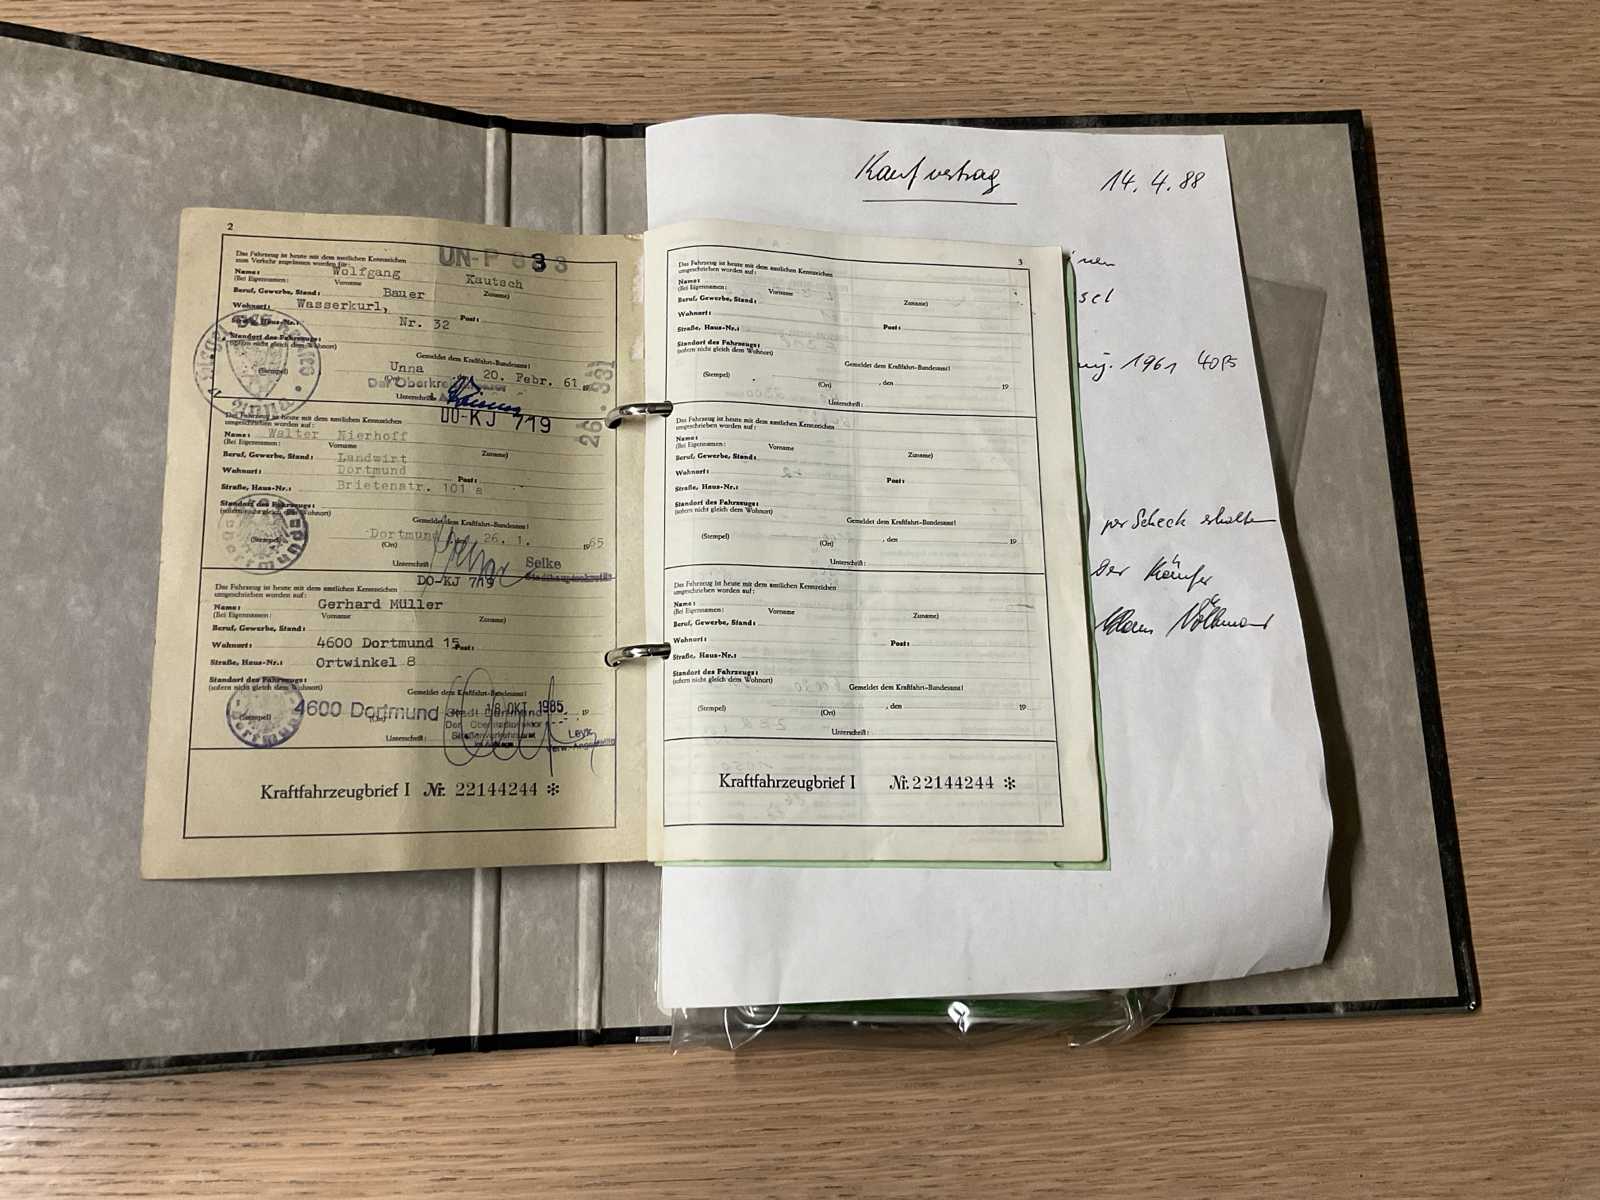 2
Das Fahrzeug ist heute mit dem amtlichen Kennzeichen
UN-P 833
zum Verkehr zugelassen worden für:
Name: Wolfgang Kautsch
(Bei Eigennamen: Vorname Zuname)
Beruf, Gewerbe, Stand: Bauer
Wohnort: Wasserkurl, Post:
Straße, Haus-Nr.: Nr. 32
Standort des Fahrzeugs:
(sofern nicht gleich dem Wohnort)
Gemeldet dem Kraftfahrt-Bundesamt:
(Stempel) Unna, den 20. Febr. 61 19
(Ort)
Der Oberkreisdirektor
Unterschrift:
DO-KJ 719
Das Fahrzeug ist heute mit dem amtlichen Kennzeichen
umgeschrieben worden auf:
Name: Walter Nierhoff
(Bei Eigennamen: Vorname Zuname)
Beruf, Gewerbe, Stand: Landwirt
Wohnort: Dortmund Post:
Straße, Haus-Nr.: Brietenstr. 101 a
Standort des Fahrzeugs:
(sofern nicht gleich dem Wohnort)
Gemeldet dem Kraftfahrt-Bundesamt:
(Stempel) Dortmund, den 26. 1. 1965
(Ort)
Unterschrift: Selke
Stadthauptsekretär
DO-KJ 719
Das Fahrzeug ist heute mit dem amtlichen Kennzeichen
umgeschrieben worden auf:
Name: Gerhard Müller
(Bei Eigennamen: Vorname Zuname)
Beruf, Gewerbe, Stand:
Wohnort: 4600 Dortmund 15 Post:
Straße, Haus-Nr.: Ortwinkel 8
Standort des Fahrzeugs:
(sofern nicht gleich dem Wohnort)
Gemeldet dem Kraftfahrt-Bundesamt:
(Stempel) 4600 Dortmund 18. OKT. 1985 19
(Ort) Stadt Dortmund
Der Oberstadtdirektor
Straßenverkehrsamt
Unterschrift: Im Auftrage
Verw.-Angestellte
Kraftfahrzeugbrief I Nr. 22144244 *
3
Das Fahrzeug ist heute mit dem amtlichen Kennzeichen
umgeschrieben worden auf:
Name:
(Bei Eigennamen: Vorname Zuname)
Beruf, Gewerbe, Stand:
Wohnort: Post:
Straße, Haus-Nr.:
Standort des Fahrzeugs:
(sofern nicht gleich dem Wohnort)
Gemeldet dem Kraftfahrt-Bundesamt:
(Stempel) , den 19
(Ort)
Unterschrift:
Das Fahrzeug ist heute mit dem amtlichen Kennzeichen
umgeschrieben worden auf:
Name:
(Bei Eigennamen: Vorname Zuname)
Beruf, Gewerbe, Stand:
Wohnort: Post:
Straße, Haus-Nr.:
Standort des Fahrzeugs:
(sofern nicht gleich dem Wohnort)
Gemeldet dem Kraftfahrt-Bundesamt:
(Stempel) , den 19
(Ort)
Unterschrift:
Das Fahrzeug ist heute mit dem amtlichen Kennzeichen
umgeschrieben worden auf:
Name:
(Bei Eigennamen: Vorname Zuname)
Beruf, Gewerbe, Stand:
Wohnort: Post:
Straße, Haus-Nr.:
Standort des Fahrzeugs:
(sofern nicht gleich dem Wohnort)
Gemeldet dem Kraftfahrt-Bundesamt:
(Stempel) , den 19
(Ort)
Unterschrift:
Kraftfahrzeugbrief I Nr. 22144244 *
Kaufvertrag 14.4.88
sel
1961 40PS
per Scheck erhalten
Der Käufer